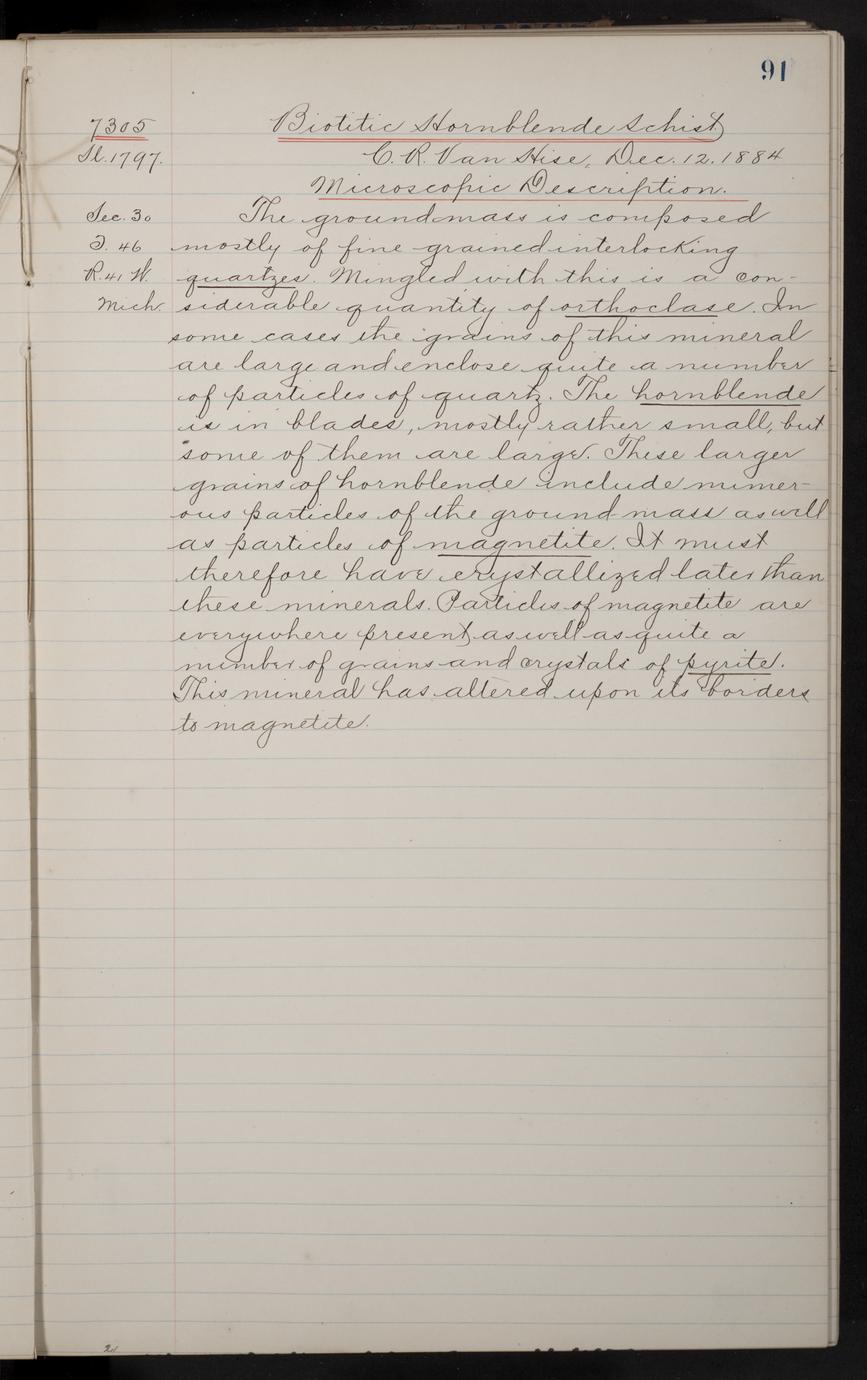 91
7305 Biotitic Hornblende Schist
Sl. 1797. C. R. Van Hise, Dec. 12, 1884
Microscopic Description.
Sec. 30 The groundmass is composed
T. 46 mostly of fine grained interlocking
R. 41 W. quartzes. Mingled with this is a con-
Mich. siderable quantity of orthoclase. In
some cases the grains of this mineral
are large and enclose quite a number
of particles of quartz. The hornblende
is in blades, mostly rather small, but
some of them are large. These larger
grains of hornblende include numer-
ous particles of the ground mass as well
as particles of magnetite. It must
therefore have crystallized later than
these minerals. Particles of magnetite are
everywhere present, as well as quite a
number of grains and crystals of pyrite.
This mineral has altered upon its borders
to magnetite.